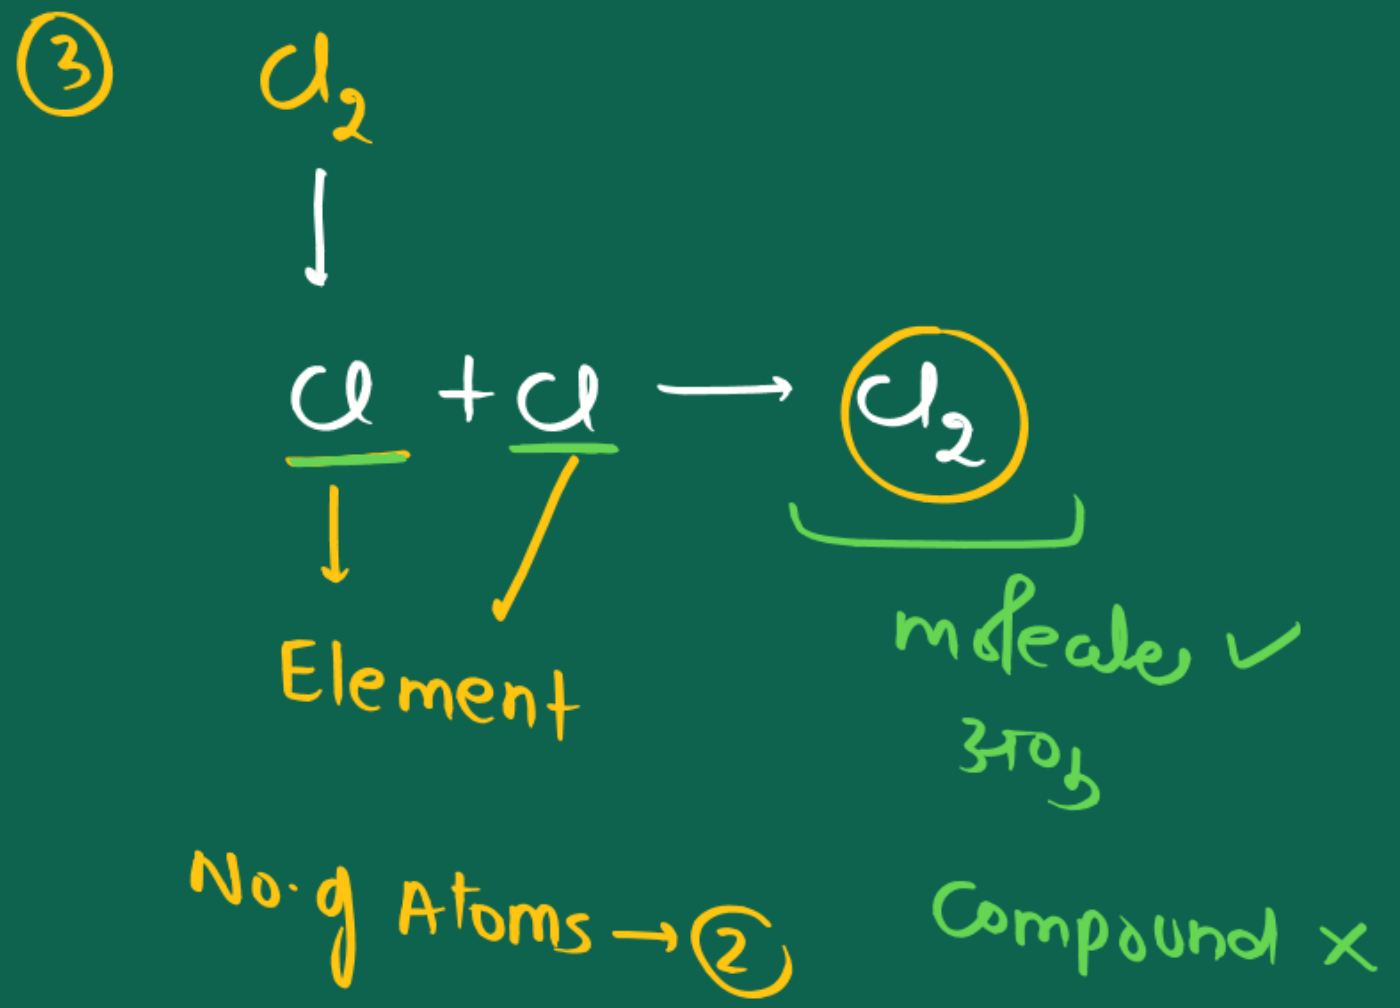 3 Cl2
Cl + Cl → Cl2
Element
molecules ✓
No. of Atoms → 2
Compound ×